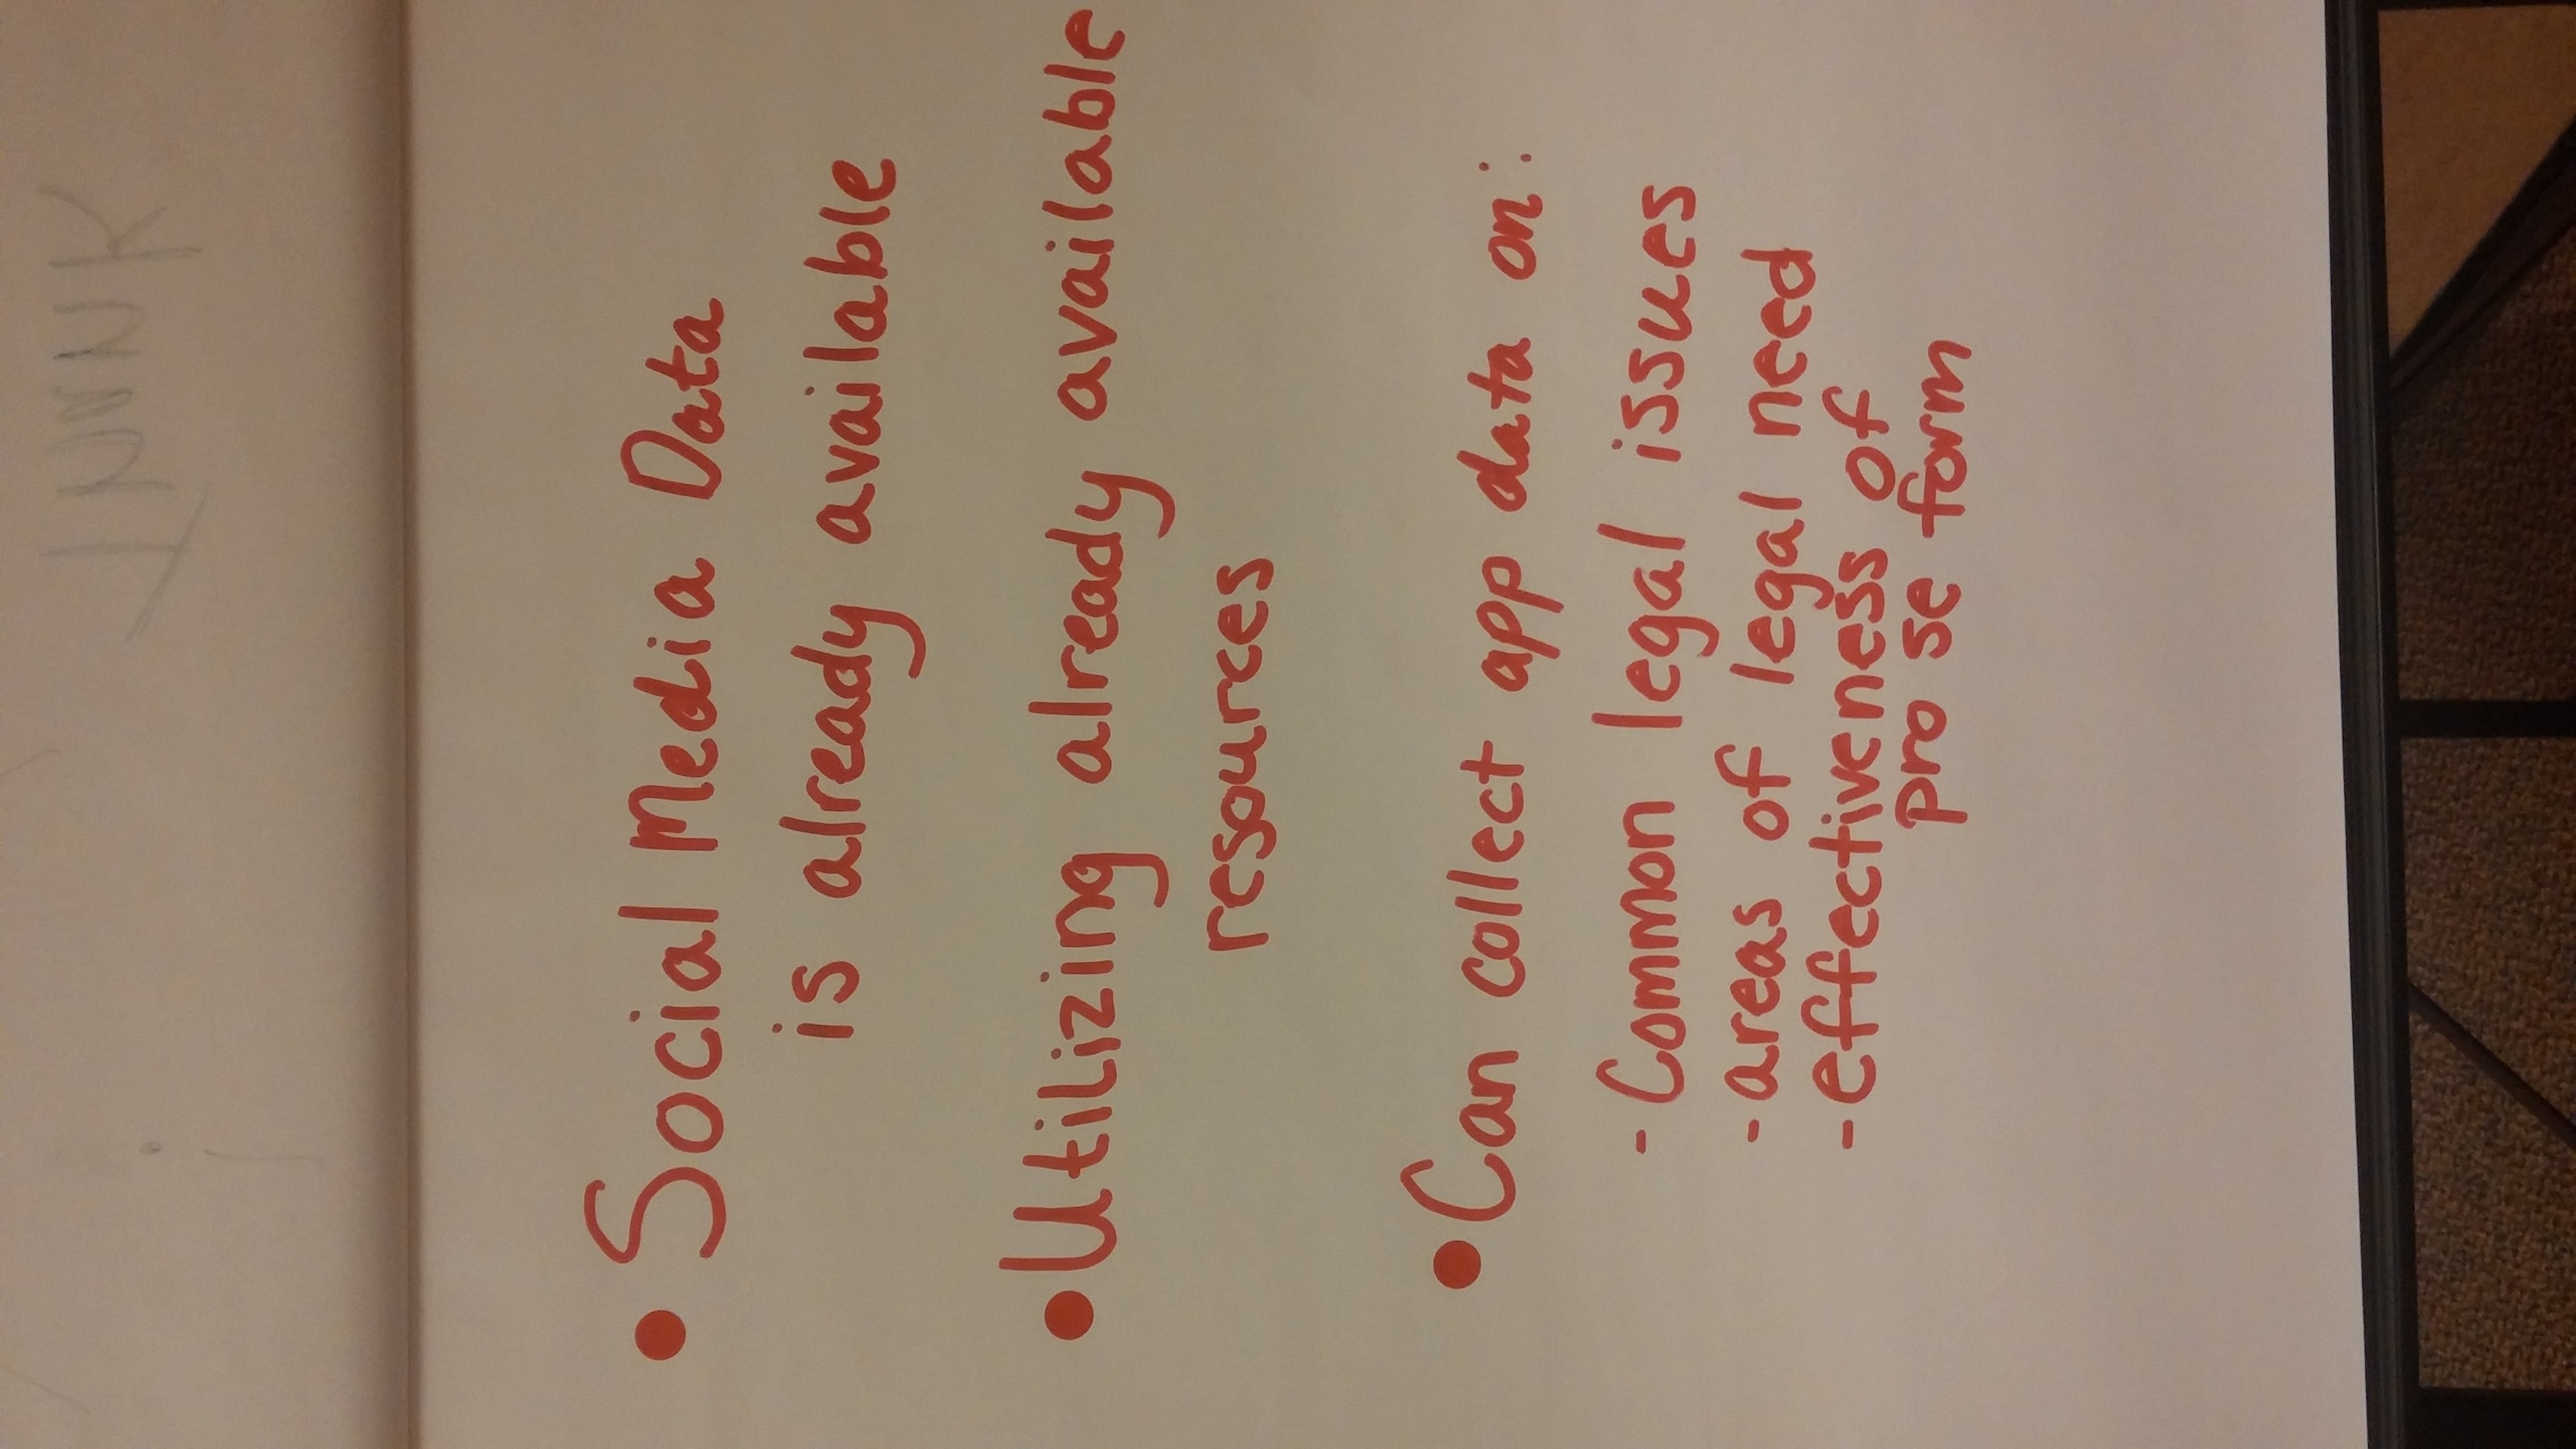 • Social Media Data
is already available
• Utilizing already available
resources
• Can collect app data on:
- Common legal issues
- areas of legal need
- effectiveness of
pro se form